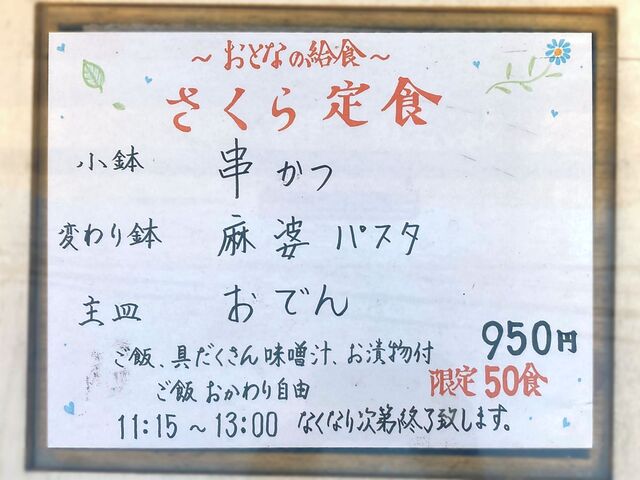 ～おとなの給食～
さくら定食
小鉢 串かつ
変わり鉢 麻婆パスタ
主皿 おでん
950円
ご飯、具だくさん味噌汁、お漬物付
限定50食
ご飯おかわり自由
11:15～13:00 なくなり次第終了致します。